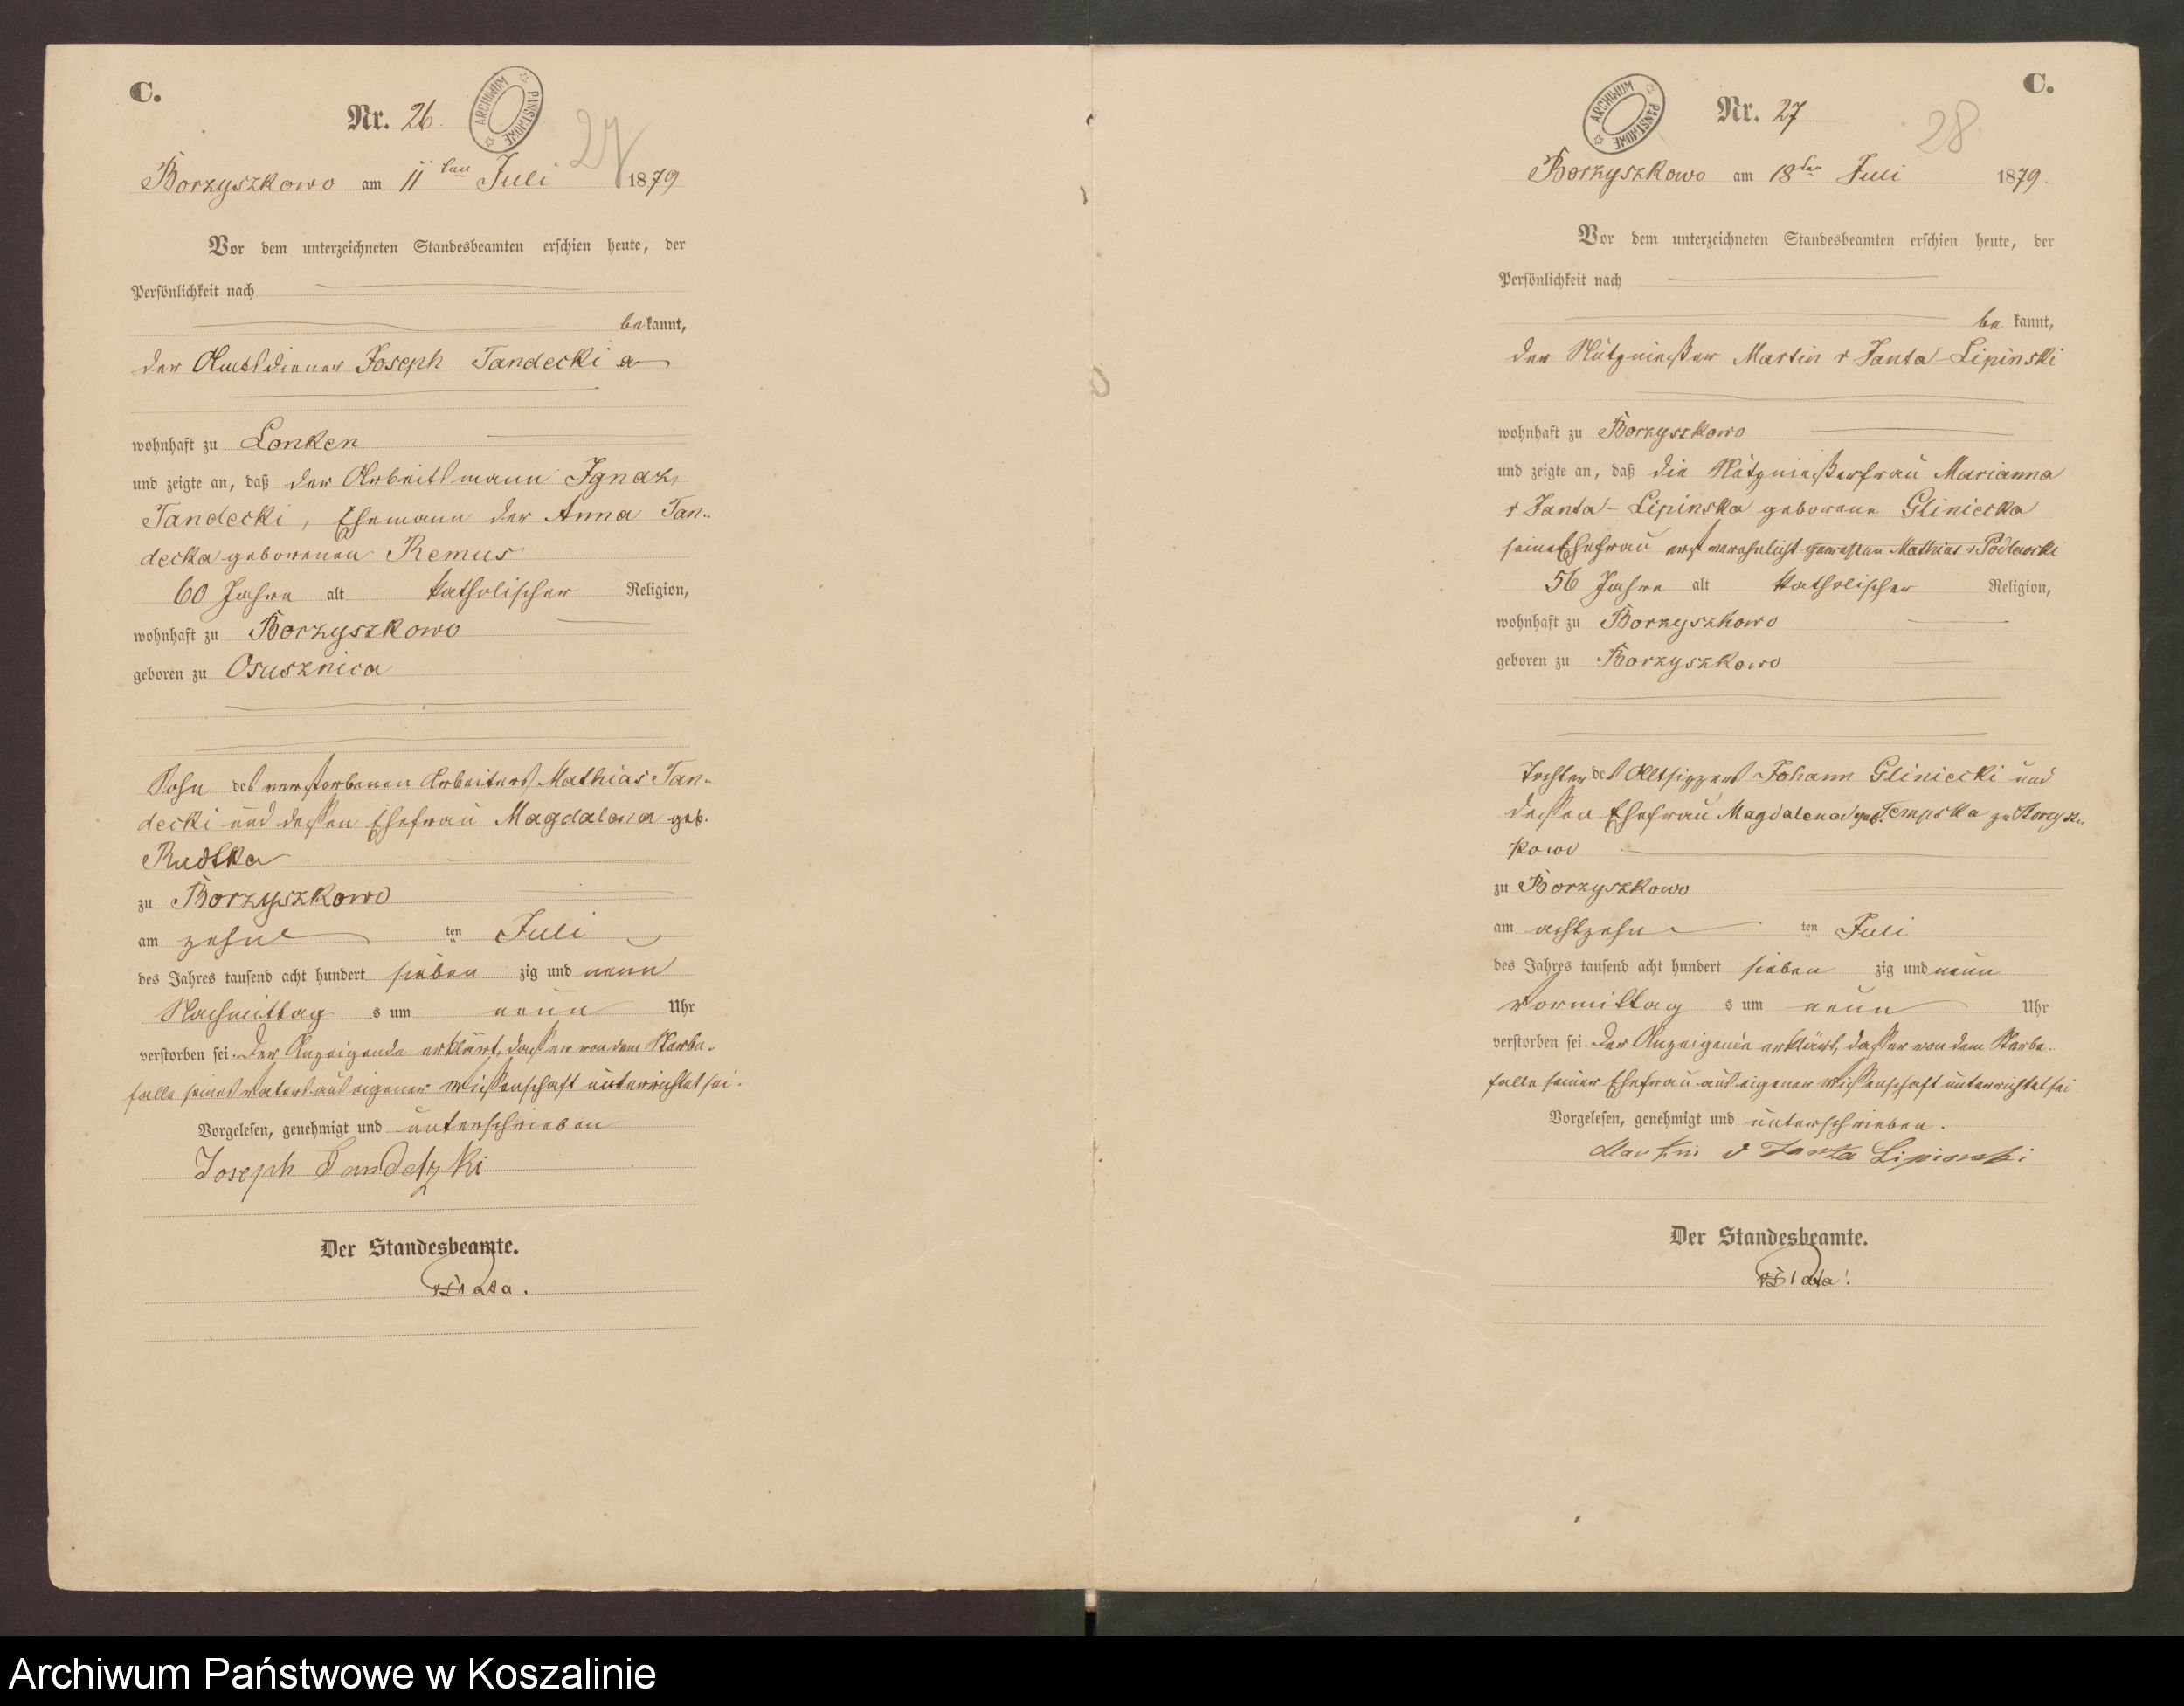 C.
Nr. 26.
ARCHIWUM PAŃSTWOWE
27
Borzyszkowo am 11ten Juli 1879
Vor dem unterzeichneten Standesbeamten erschien heute, der
Persönlichkeit nach
bekannt,
der Amtsdiener Joseph Tandecki
wohnhaft zu Lonken
und zeigte an, daß der Arbeitsmann Ignatz
Tandecki, Ehemann der Anna Tan-
decka geborenen Remus
60 Jahre alt katholischer Religion,
wohnhaft zu Borzyszkowo
geboren zu Osusznica
Sohn des verstorbenen Arbeiters Mathias Tan-
decki und dessen Ehefrau Magdalena geb.
Rudtka
zu Borzyszkowo
am zehn ten Juli
des Jahres tausend acht hundert sieben zig und neun
Nachmittag s um neun Uhr
verstorben sei. Der Anzeigende erklärt, dass er von dem Sterbe-
falle seines Vaters aus eigener Wissenschaft unterrichtet sei.
Vorgelesen, genehmigt und unterschrieben
Joseph Tandetzki
Der Standesbeamte.
C.
Nr. 27
ARCHIWUM PAŃSTWOWE
28
Borzyszkowo am 18ten Juli 1879.
Vor dem unterzeichneten Standesbeamten erschien heute, der
Persönlichkeit nach
be kannt,
der Nutznießer Martin v Janta-Lipinski
wohnhaft zu Borzyszkowo
und zeigte an, daß die Nutznießerfrau Marianna
v Janta-Lipinska geborene Gliniecka
seine Ehefrau erst verehelicht gewesene Mathias v Podlewski
56 Jahre alt katholischer Religion,
wohnhaft zu Borzyszkowo
geboren zu Borzyszkowo
Tochter des Altsitzers Johann Gliniecki und
dessen Ehefrau Magdalena geb. Tempska zu Borzysz-
kowo
zu Borzyszkowo
am achtzehn ten Juli
des Jahres tausend acht hundert sieben zig und neun
Vormittag s um neun Uhr
verstorben sei. Der Anzeigende erklärt, dass er von dem Sterbe-
falle seiner Ehefrau aus eigener Wissenschaft unterrichtet sei
Vorgelesen, genehmigt und unterschrieben.
Martin v Janta Lipinski
Der Standesbeamte.
Archiwum Państwowe w Koszalinie